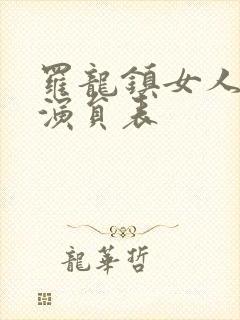 羅龍鎮女人
演員表
龍華哲